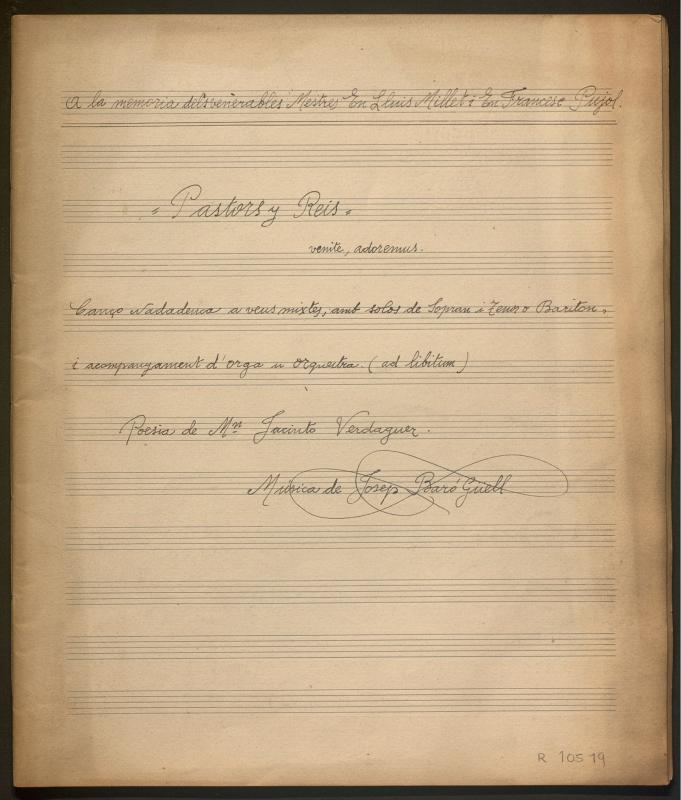 A la memoria dels venerables Mestres En Lluis Millet i En Francesc Pujol.
= Pastors y Reis =
venite, adoremus.
Canço Nadalenca a veus mixtes, amb solos de Sopran i Tenor o Bariton,
i acompanyament d'orga u orquestra. (ad libitum)
Poesia de Mn Jacinto Verdaguer.
Música de Josep Baró Güell
R 10519